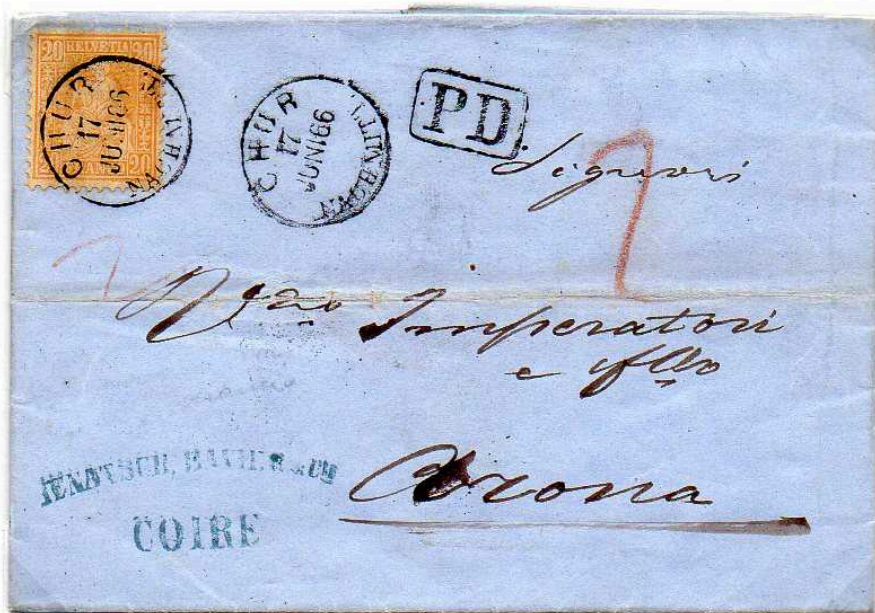 20 HELVETIA 20
CHUR
17
JUNI 66
CHUR
17
JUNI 66
NACHMITT.
PD
Signori
Imperatori
e
Arona
JENATSCH, BAVIER & Cie
COIRE